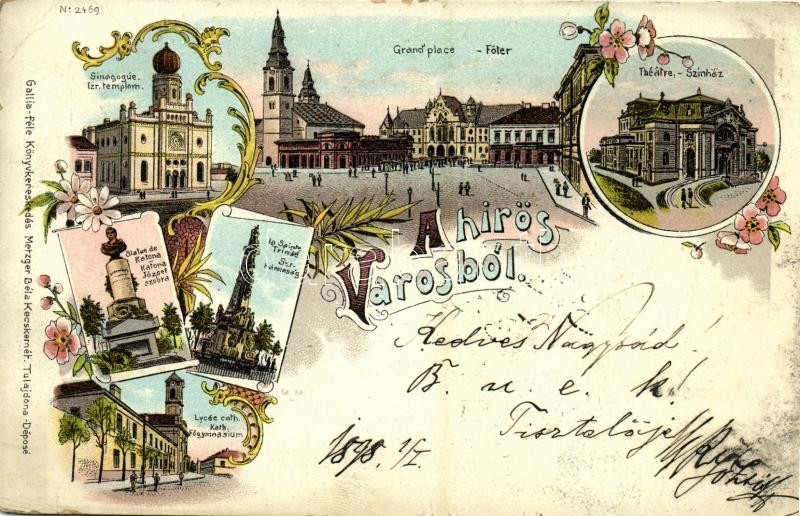 Nº 2469
Sinagogue.
Izr. templom.
Grand' place - Főter
Théâtre, - Szinház
Statue de
Katona
Katona
József
szobra
la Sainte
Trinité
Szt.
háromság
A hirös
Városból.
Lycée cath.
Kath.
főgymnásium
Gallia-féle Könyvkereskedés Metzger Béla Kecskemét. Tulajdona-Déposé
Kedves Nagysád!
B. u. e. k!
Tisztelője
1898 1/I